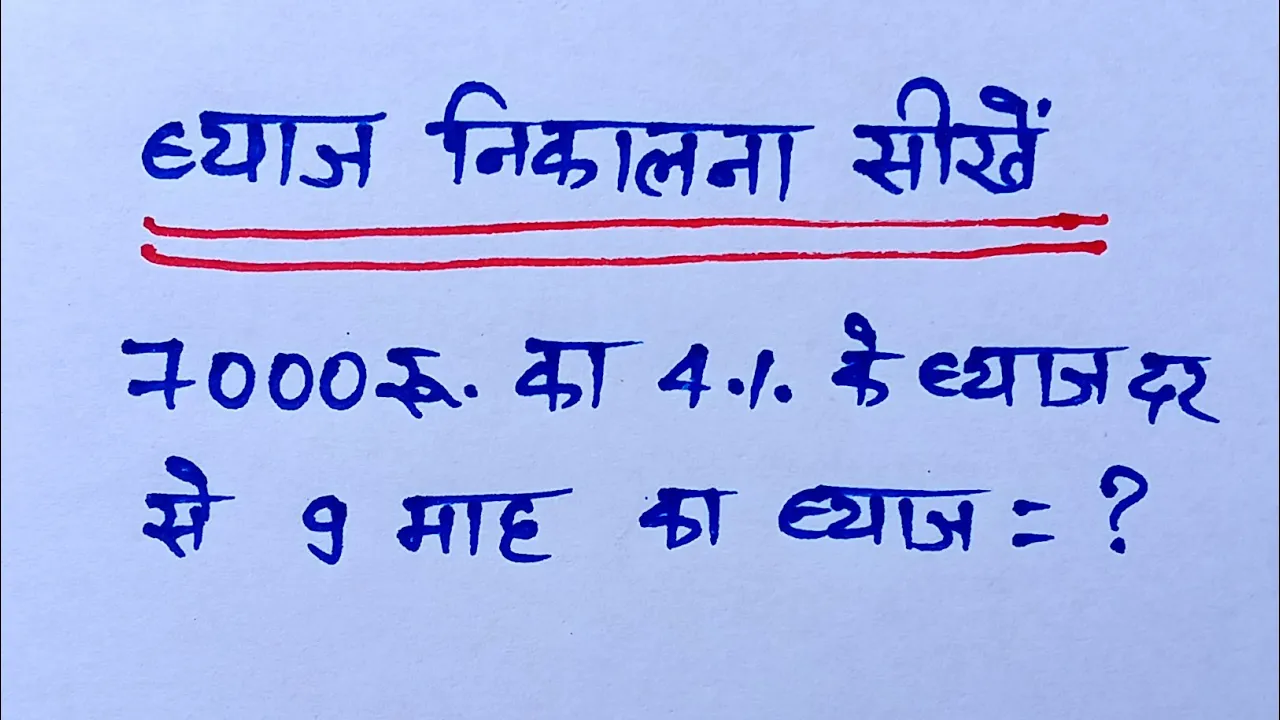 ब्याज निकालना सीखें
7000रू. का 4.1. के ब्याज दर
से 9 माह का ब्याज = ?